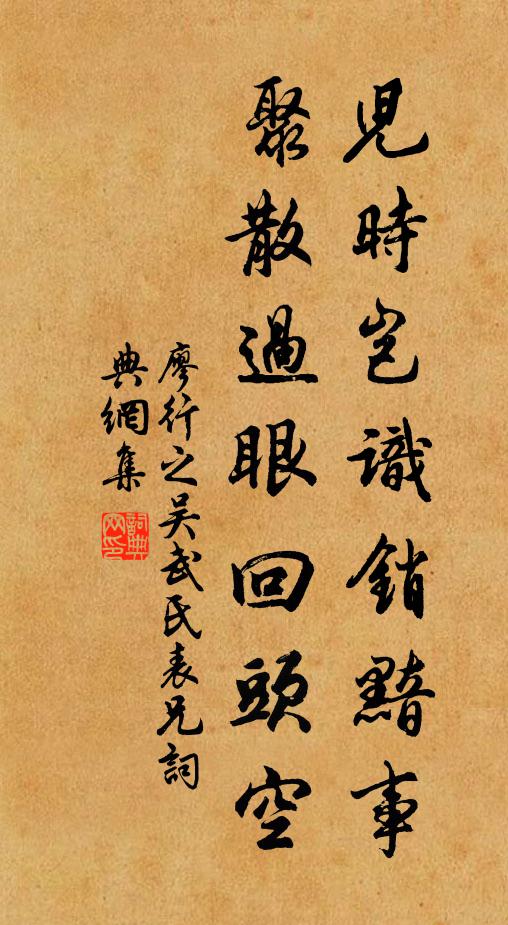 兒時豈識銷黯事
聚散過眼回頭空
廖行之吴武民表兄詞
典網集
詞典
网印